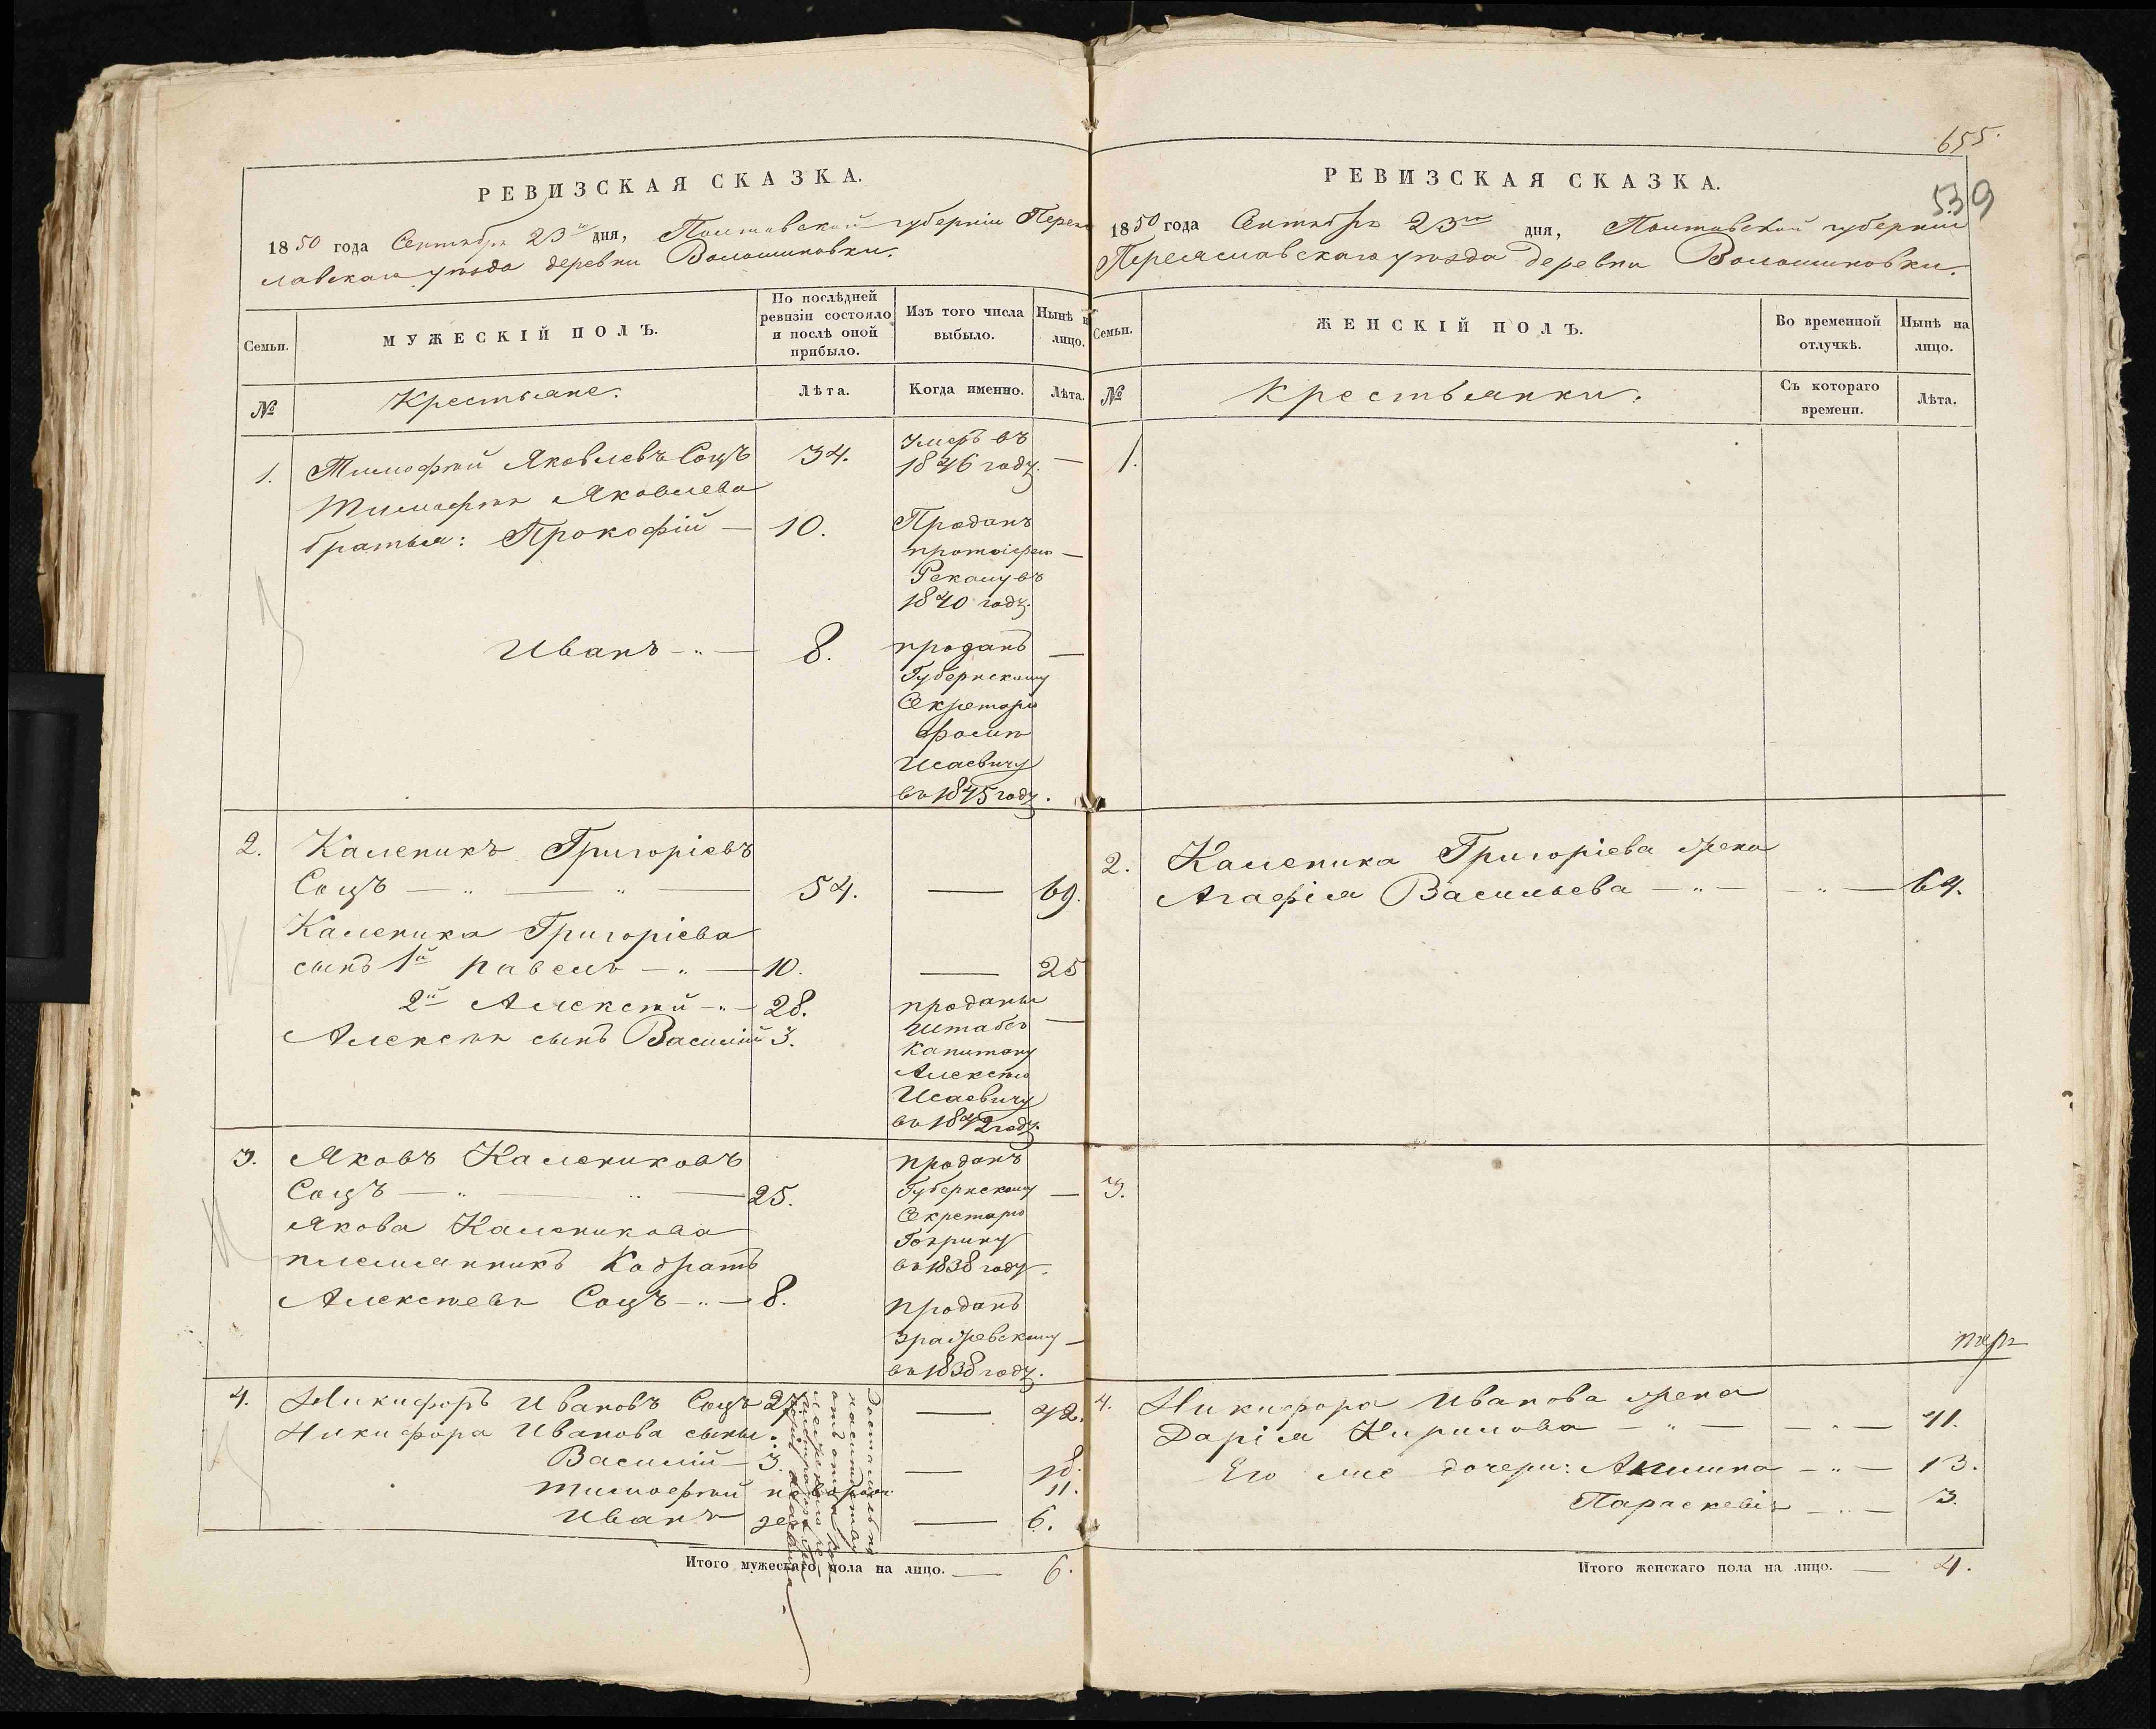 РЕВИЗСКАЯ СКАЗКА.
1850 года Сентября 23го дня, Полтавской губерніи Перея
славскаго уѣзда деревни Волошиновки.
Семьи.
МУЖЕСКІЙ ПОЛЪ.
По послѣдней
ревизіи состояло
и послѣ оной
прибыло.
Изъ того числа
выбыло.
Нынѣ н
лицо.
№
Крестьяне.
Лѣта.
Когда именно.
Лѣта.
1. Тимофѣй Яковлевъ Соцъ 34. Умеръ въ
1846 году. —
Тимофѣя Яковлева
братья: Прокофій — 10. Проданъ
протоіерею —
въ
1840 году.
Иванъ — 8. проданъ —
Губернскому
Секретарю
Фомѣ
Исаевичу
въ 1845 году.
2. Каленикъ Григоріевъ
Соцъ — 54. — 69.
Каленика Григоріева
сынъ 1й Павелъ — 10. — 25
2й Алексѣй — 28. проданы
Алексѣя сынъ Василій 3. Штабсъ —
Капитану
Алексѣю
Исаевичу
въ 1842 году.
3. Яковъ Калениковъ проданъ
Соцъ — 25. Губернскому —
Секретарю
Якова Каленикова
племянникъ Кодратъ въ 1838 году.
Алексѣевъ Соцъ — 8. проданъ
—
въ 1838 году.
4. Никифоръ Ивановъ Соцъ 27 — 42.
Никифора Иванова сыны:
Василій — 3. — 18.
Тимофѣй 11.
Иванъ — 6.
Достались по
наслѣдству
отъ
Итого мужескаго пола на лицо. — 6.
655.
539
РЕВИЗСКАЯ СКАЗКА.
1850 года Сентября 23го дня, Полтавской губерніи
Переяславскаго уѣзда деревни Волошиновки.
Семьи.
ЖЕНСКІЙ ПОЛЪ.
Во временной
отлучкѣ.
Нынѣ на
лицо.
№
Крестьянки.
Съ котораго
времени.
Лѣта.
1.
2. Каленика Григоріева жена
Агафія Васильева — 64.
3.
4. Никифора Иванова жена
Дарія Кирилова — 41.
Его же дочери: Акилина — 13.
Параскевія — 3.
Итого женскаго пола на лицо. — 4.